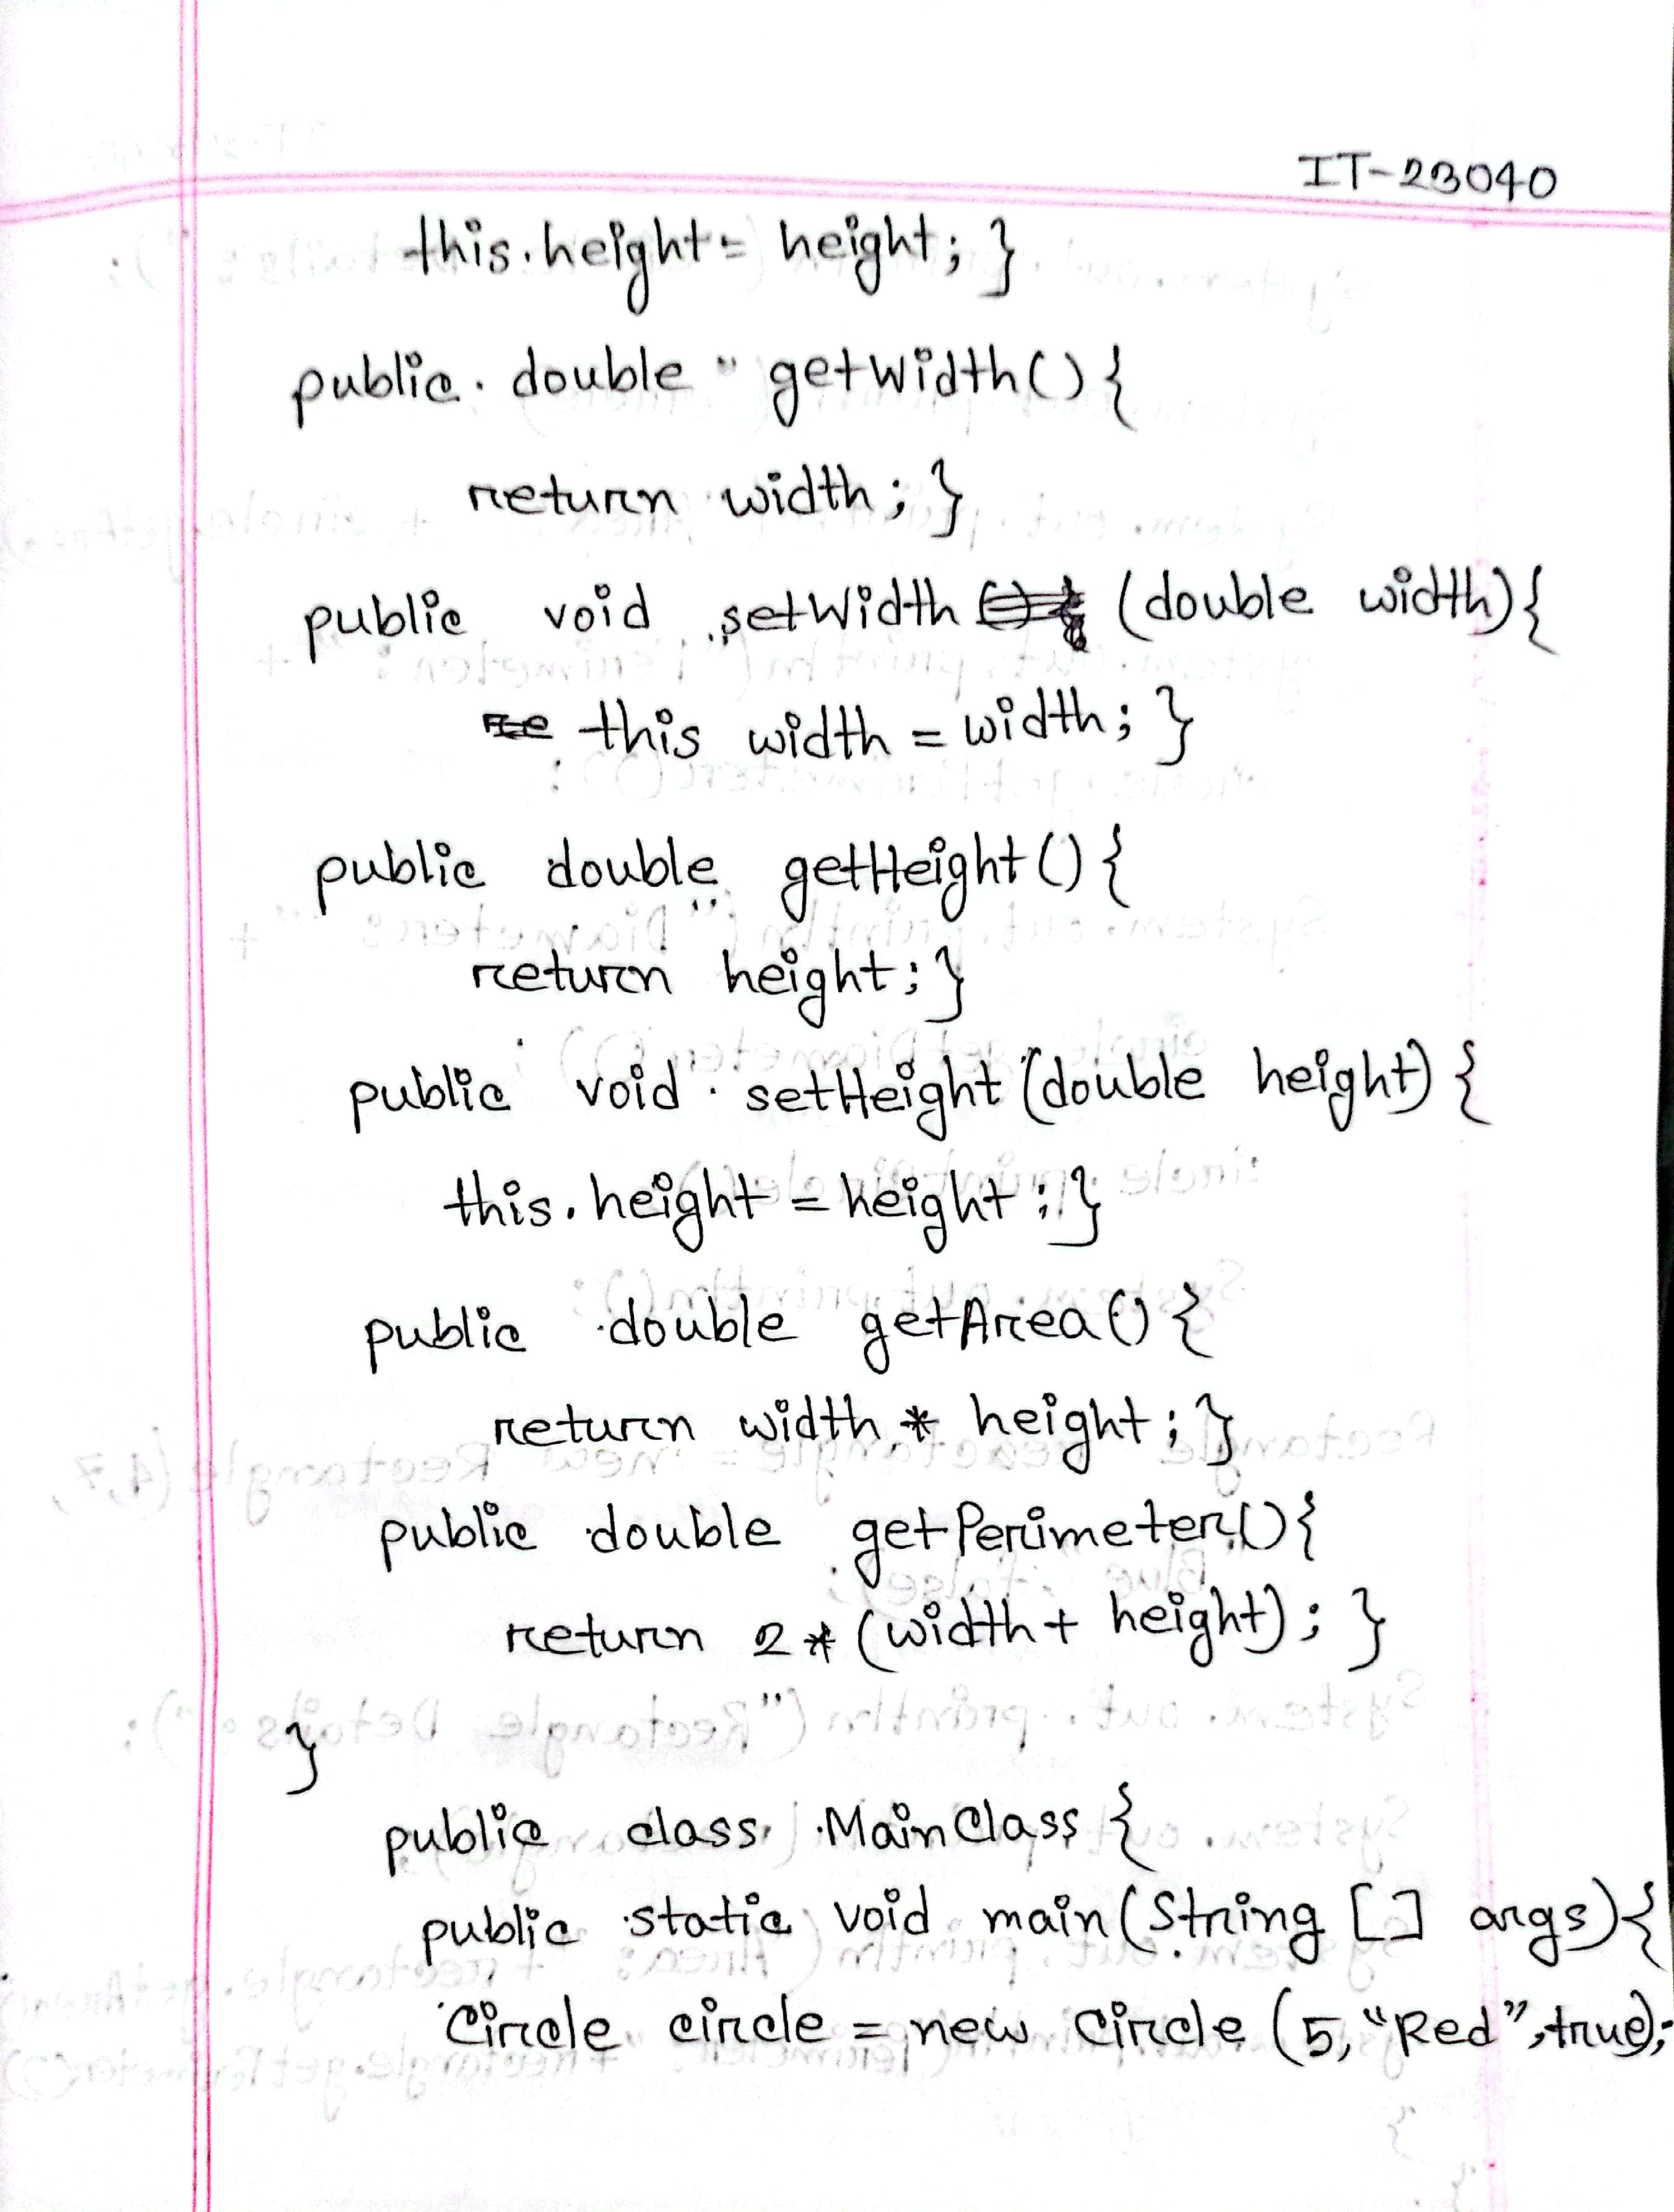 IT-23040
this.height = height; }
public double getWidth() {
return width; }
public void setWidth (double width) {
this width = width; }
public double getHeight() {
return height; }
public void setHeight (double height) {
this.height = height; }
public double getArea() {
return width * height; }
public double getPerimeter() {
return 2 * (width + height); }
}
public class MainClass {
public static void main(String [] args) {
Circle circle = new Circle (5, "Red", true);